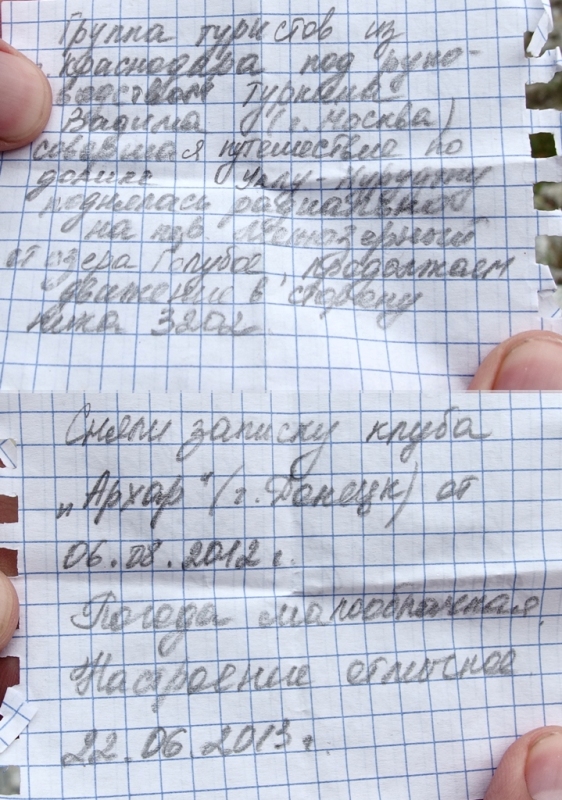 Группа туристов из
Краснодара под руко-
водством Туркина
Вадима (г. Москва)
совершая путешествие по
долине
поднялась радиально
на пер.
от озера Голубое, продолжаем
движение в сторону
пика 3202
Сняли записку клуба
„Архар" (г. Донецк) от
06.08.2012 г.
Погода малооблачная.
Настроение отличное
22.06.2013 г.